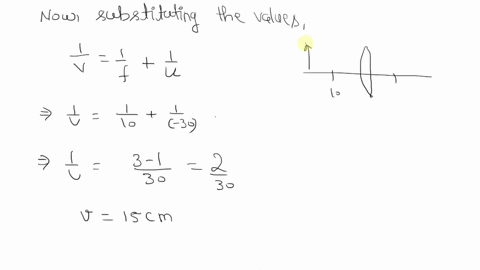 Now, substituting the values,
1/v = 1/f + 1/u
⇒ 1/v = 1/10 + 1/(-30)
10
⇒ 1/v = 3-1/30 = 2/30
v = 15 cm